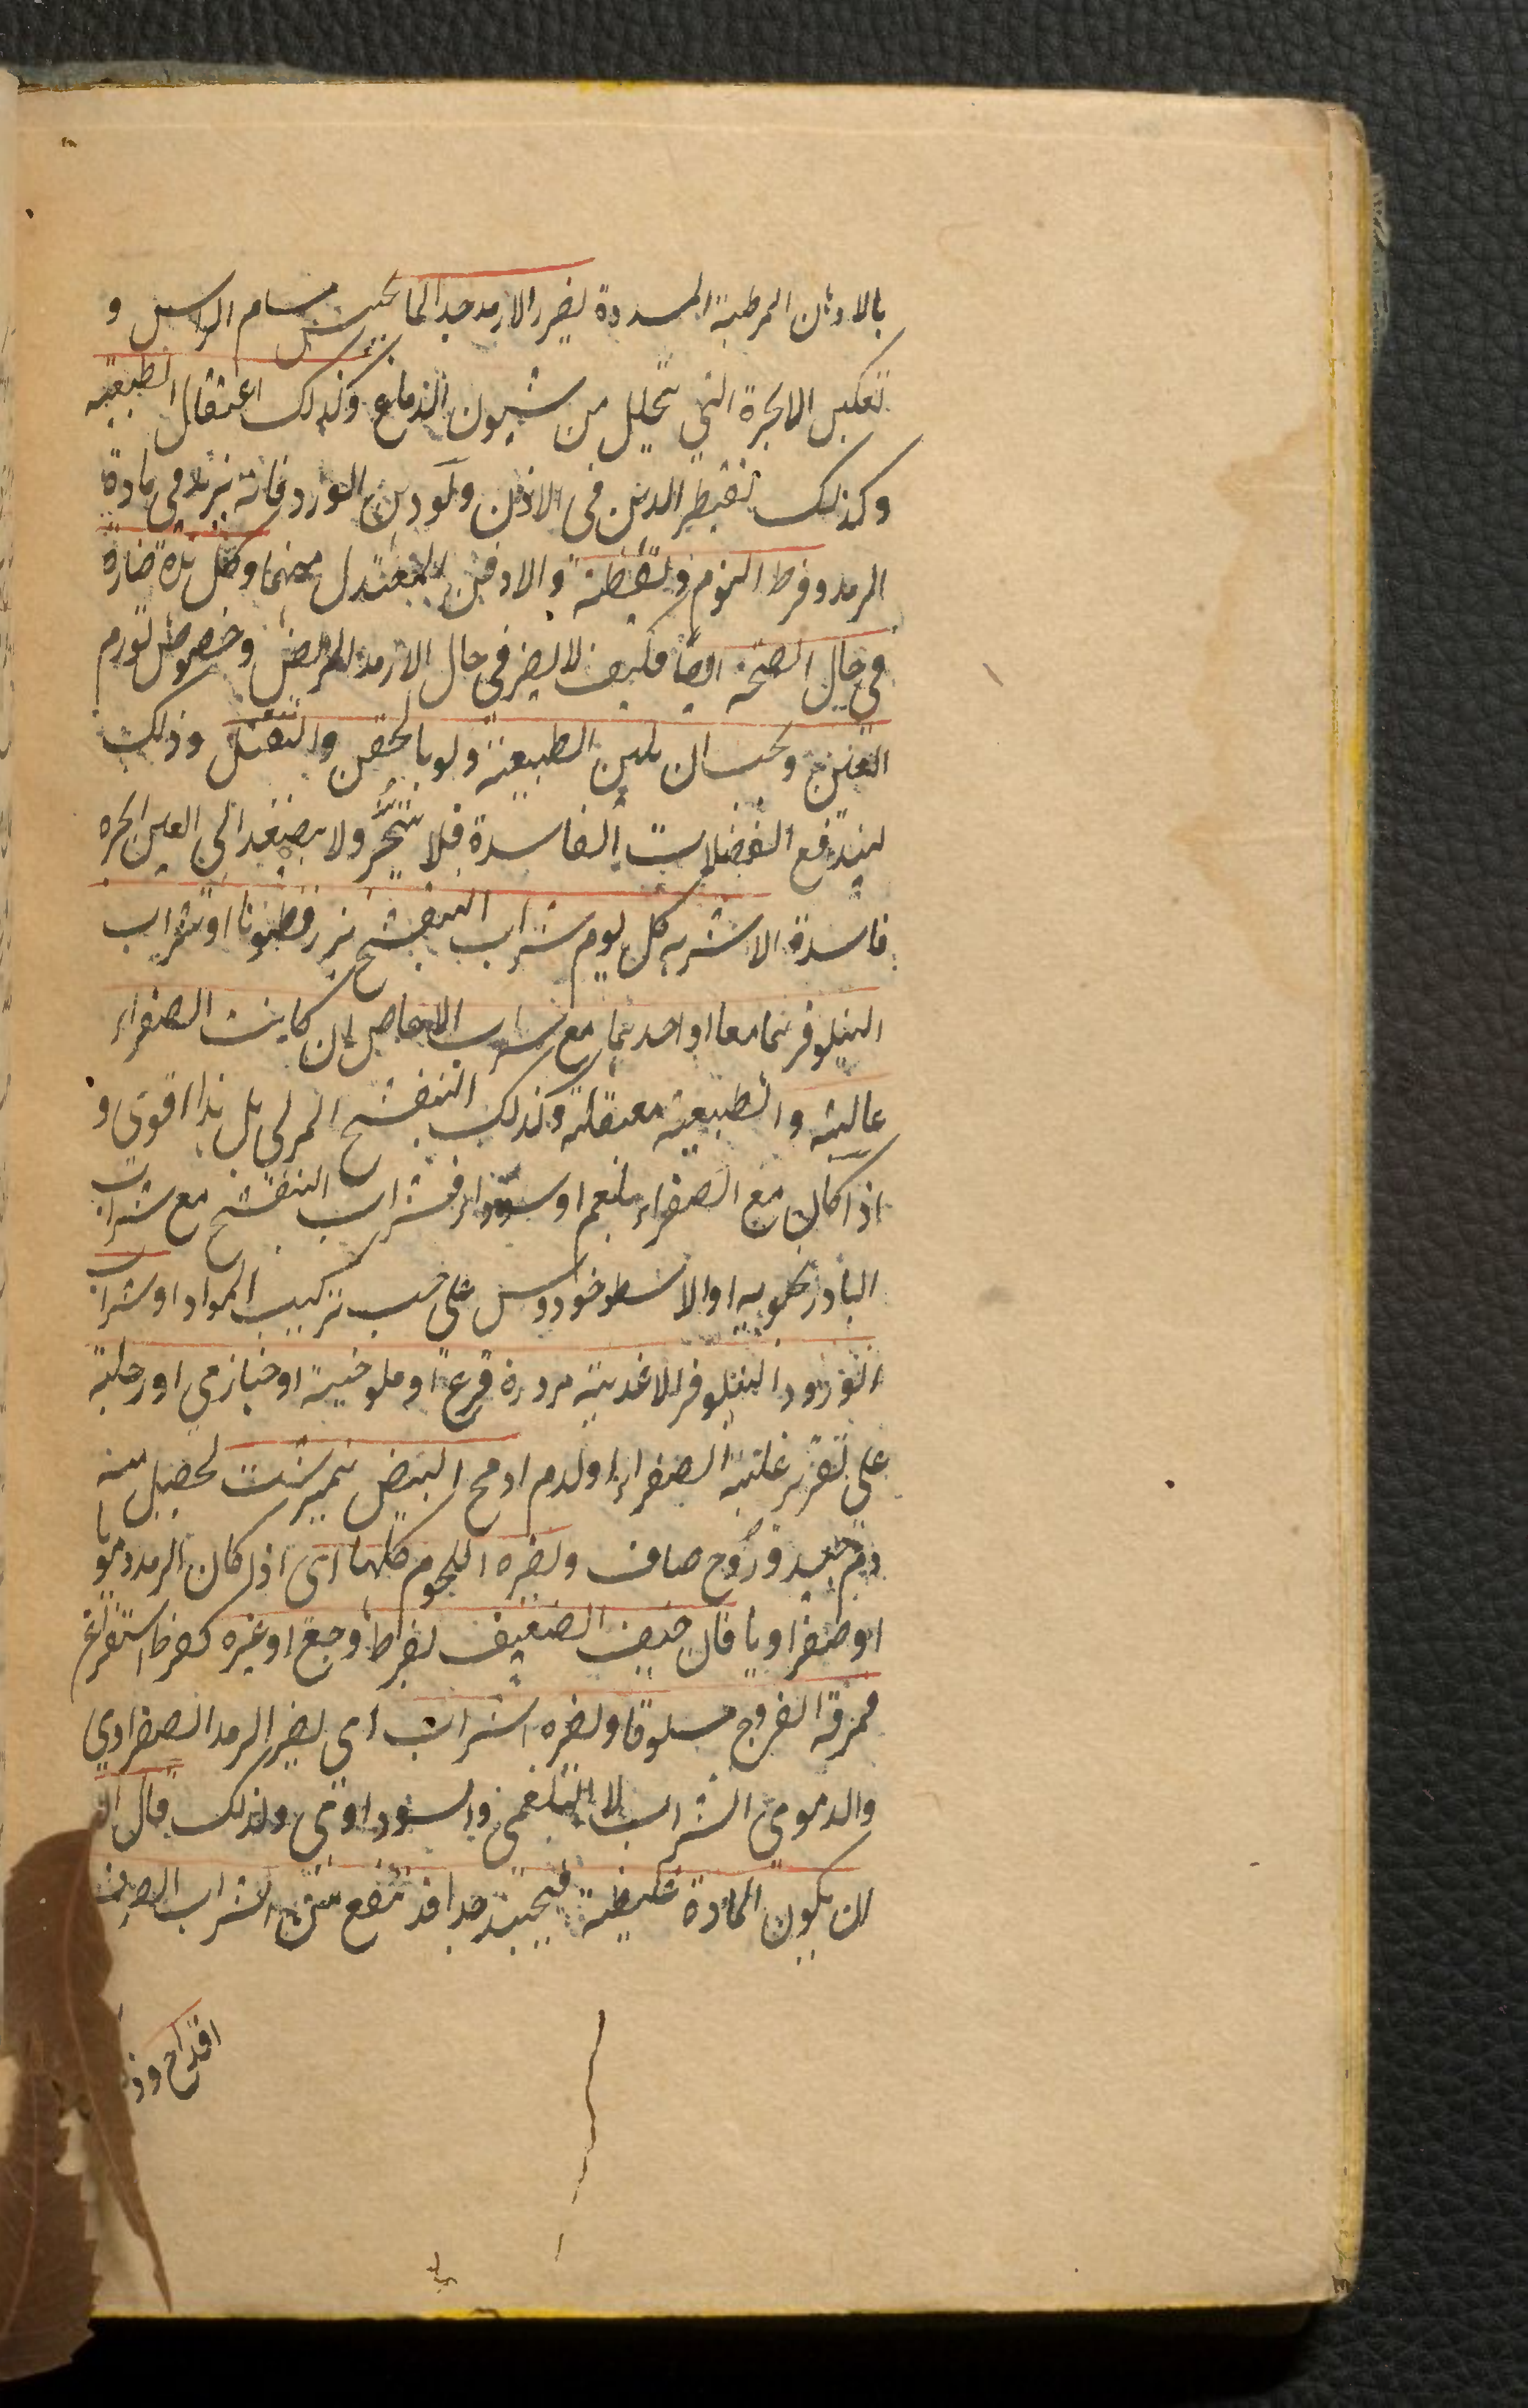 بالادهان المرطبة المسددة يضر الارمد جدا لما يحبس مسام الراس و
تعكيس الابخرة التي تتحلل من شيون الدماغ وكذلك اعتقال الطبيعة
وكذلك تقطير الدهن في الاذن ولو دهن الورد فانه يزيد في مادة
الرمد وفرط النوم واليقظة والاوفق المعتدل منهما وكل هذه ضارة
في حال الصحة ايضا فكيف لا يضر في حال الارمد المرض وخصوص تورم
العين ويجب ان يلين الطبيعة ولو بالحقن والفتل وذلك
ليندفع الفضلات الفاسدة فلا تتبخر ولا يصعد الى العين ابخرة
فاسدة الاشربه كل يوم شراب البنفسج ببزرقطونا او شراب
النيلوفر هما معا او احدهما مع شراب الاجاص ان كانت الصفراء
غالبة والطبيعة معتقلة وكذلك البنفسج المربى بل هذا اقوى و
اذا كان مع الصفراء بلغم او سوداء فشراب البنفسج مع شراب
البادرنجبويه او الاسطوخودوس على حسب تركيب المواد او شراب
الورد والنيلوفر الاغذية مزورة قرعة او ملوخية او خبازي او رجلة
على تقدير غلبة الصفراء او الدم او مح البيض نيمبرشت ليحصل منه
دم جيد وروح صاف ويضره اللحوم كلها اى اذا كان الرمد دمويا
او صفراويا فان خيف الضعيف لفرط وجع او غيره كفرط استفراغ
فمرقة الفروج مسلوقا ويضره الشراب اى يضر الرمد الصفراوي
والدموي الشراب لا البلغمي والسوداوي ولذلك قال
ان يكون المادة غليظة فيجتنب جدا فقد ينفع من الشراب الصرف
اقداح وذ